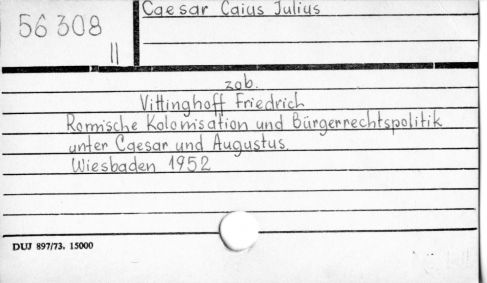 56 308
II
Caesar Caius Julius
zob.
Vittinghoff Friedrich
Romische Kolonisation und Bürgerrechtspolitik
unter Caesar und Augustus.
Wiesbaden 1952
DUJ 897/73. 15000